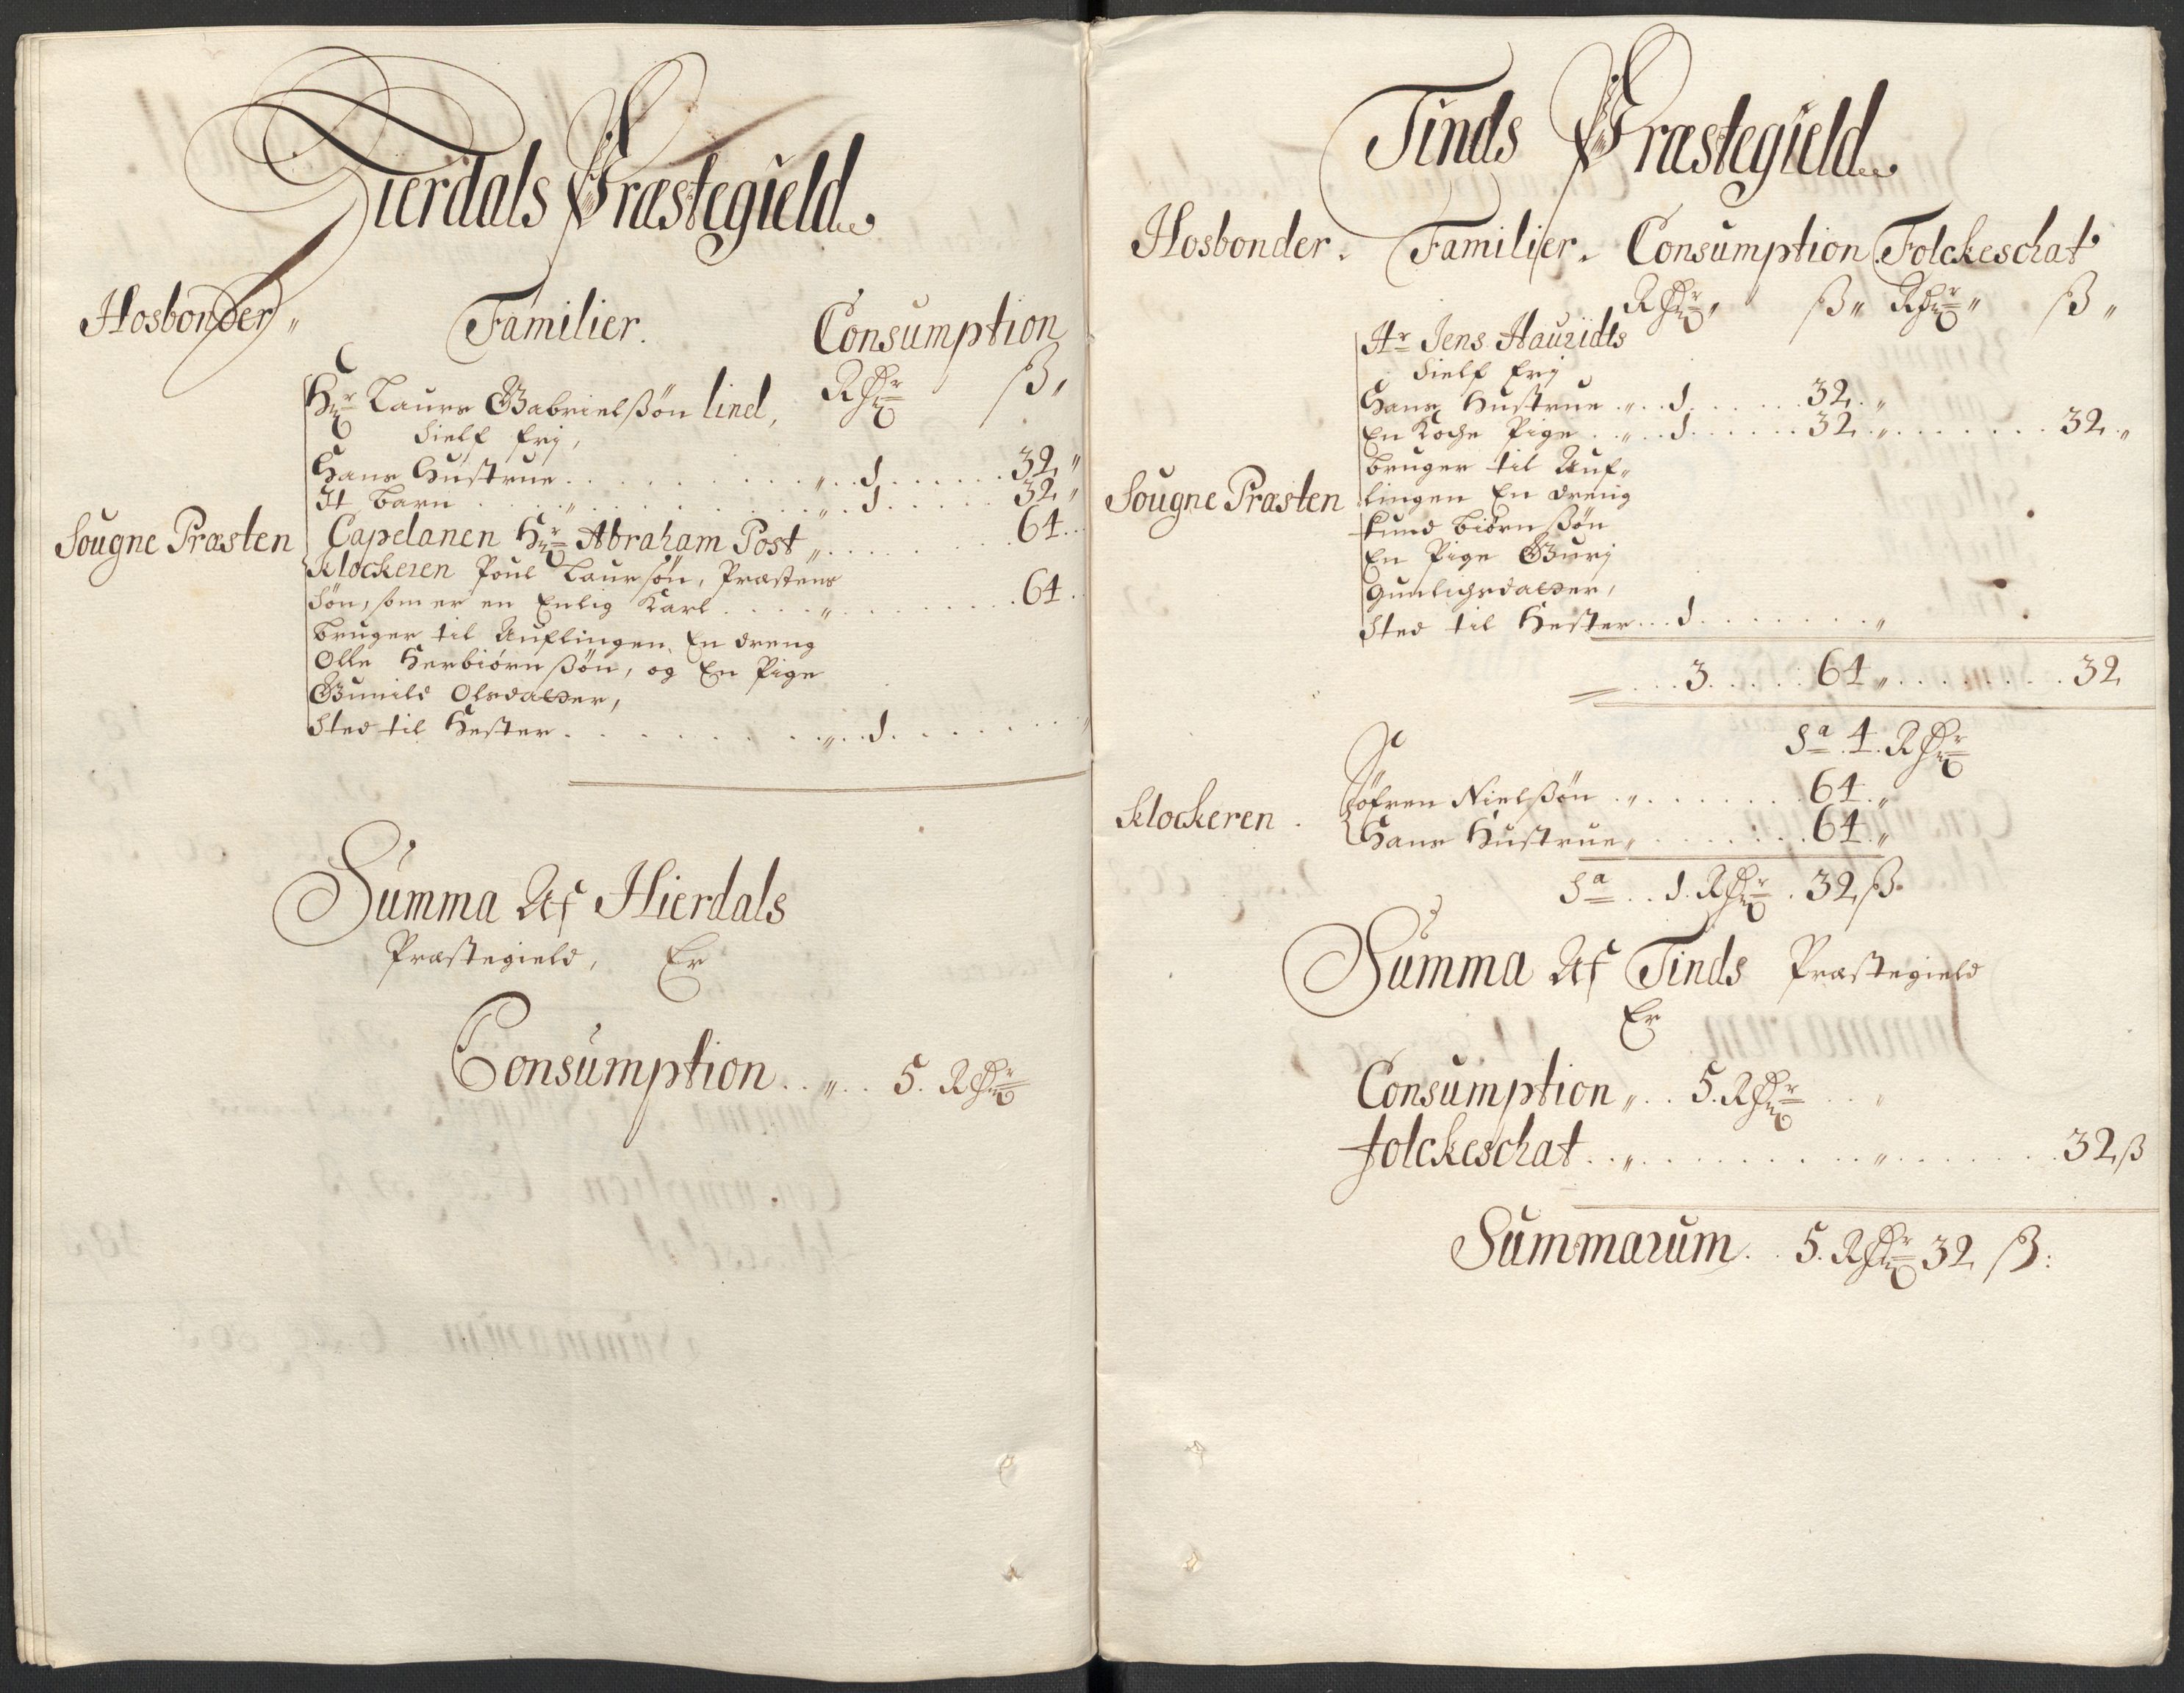 Hierdals Præstegield
Hosbonder Familier. Consumption
Rdr ß
Hr Laurs Gabrielßøn Lind,
Sielf frj,
Hans Hustrue 1 32
It Barn 1 32
Sougne Præsten
Capelanen Hr Abraham Post 64
Klockeren Poul Laursøn, Præstens
Søn, som er en Enlig Karl 64
bruger til Auflingen En dreng
Olle Herbiørnßøn, og En Pige
Gunild Olsdatter,
Sted til Hester 1
Summa Af Hierdals
Præstegield, Er
Consumption 5. Rdr
Tinds Præstegield
Hosbonder. Familier. Consumption Folckeschat
Rdr ß Rdr ß
Hr Jens
Sielf frj
Hans Hustrue 1 32
En Koche Pige 1 32 32
bruger til Auf-
Sougne Præsten
lingen En dreng
Knud Biørnßøn
En Pige Gurj
Gunlichsdatter,
Sted til Hester 1
3 64 32
Sa 4. Rdr
Klockeren
Søfren Nielßøn 64
Hans Hustrue 64
Sa 1. Rdr 32 ß
Summa Af Tinds Præstegield
Er
Consumption 5. Rdr
Folckeschat 32 ß
Summarum 5. Rdr 32 ß: